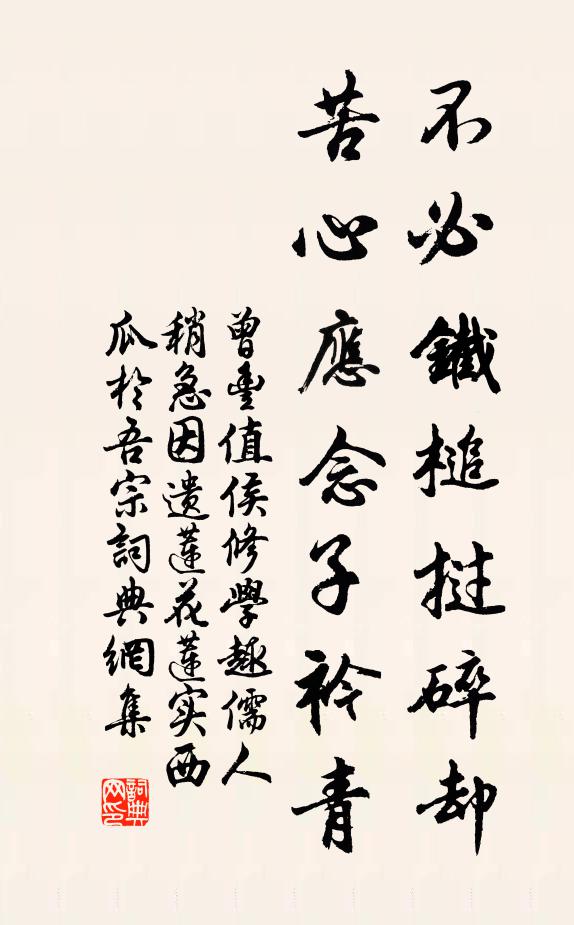 不必鐵槌撻碎却
苦心應念子衿青
曾豐值侯修學趣儒人
稍急因遺蓮花蓮实西
瓜於吾宗詞典網集
詞典
网印